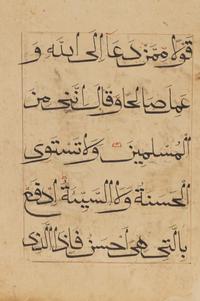 قولا ممن دعا الى الله و
عمل صالحا وقال اننى من
المسلمين ولا تستوى
الحسنة ولا السيئة ادفع
بالتى هى احسن فاذا الذى